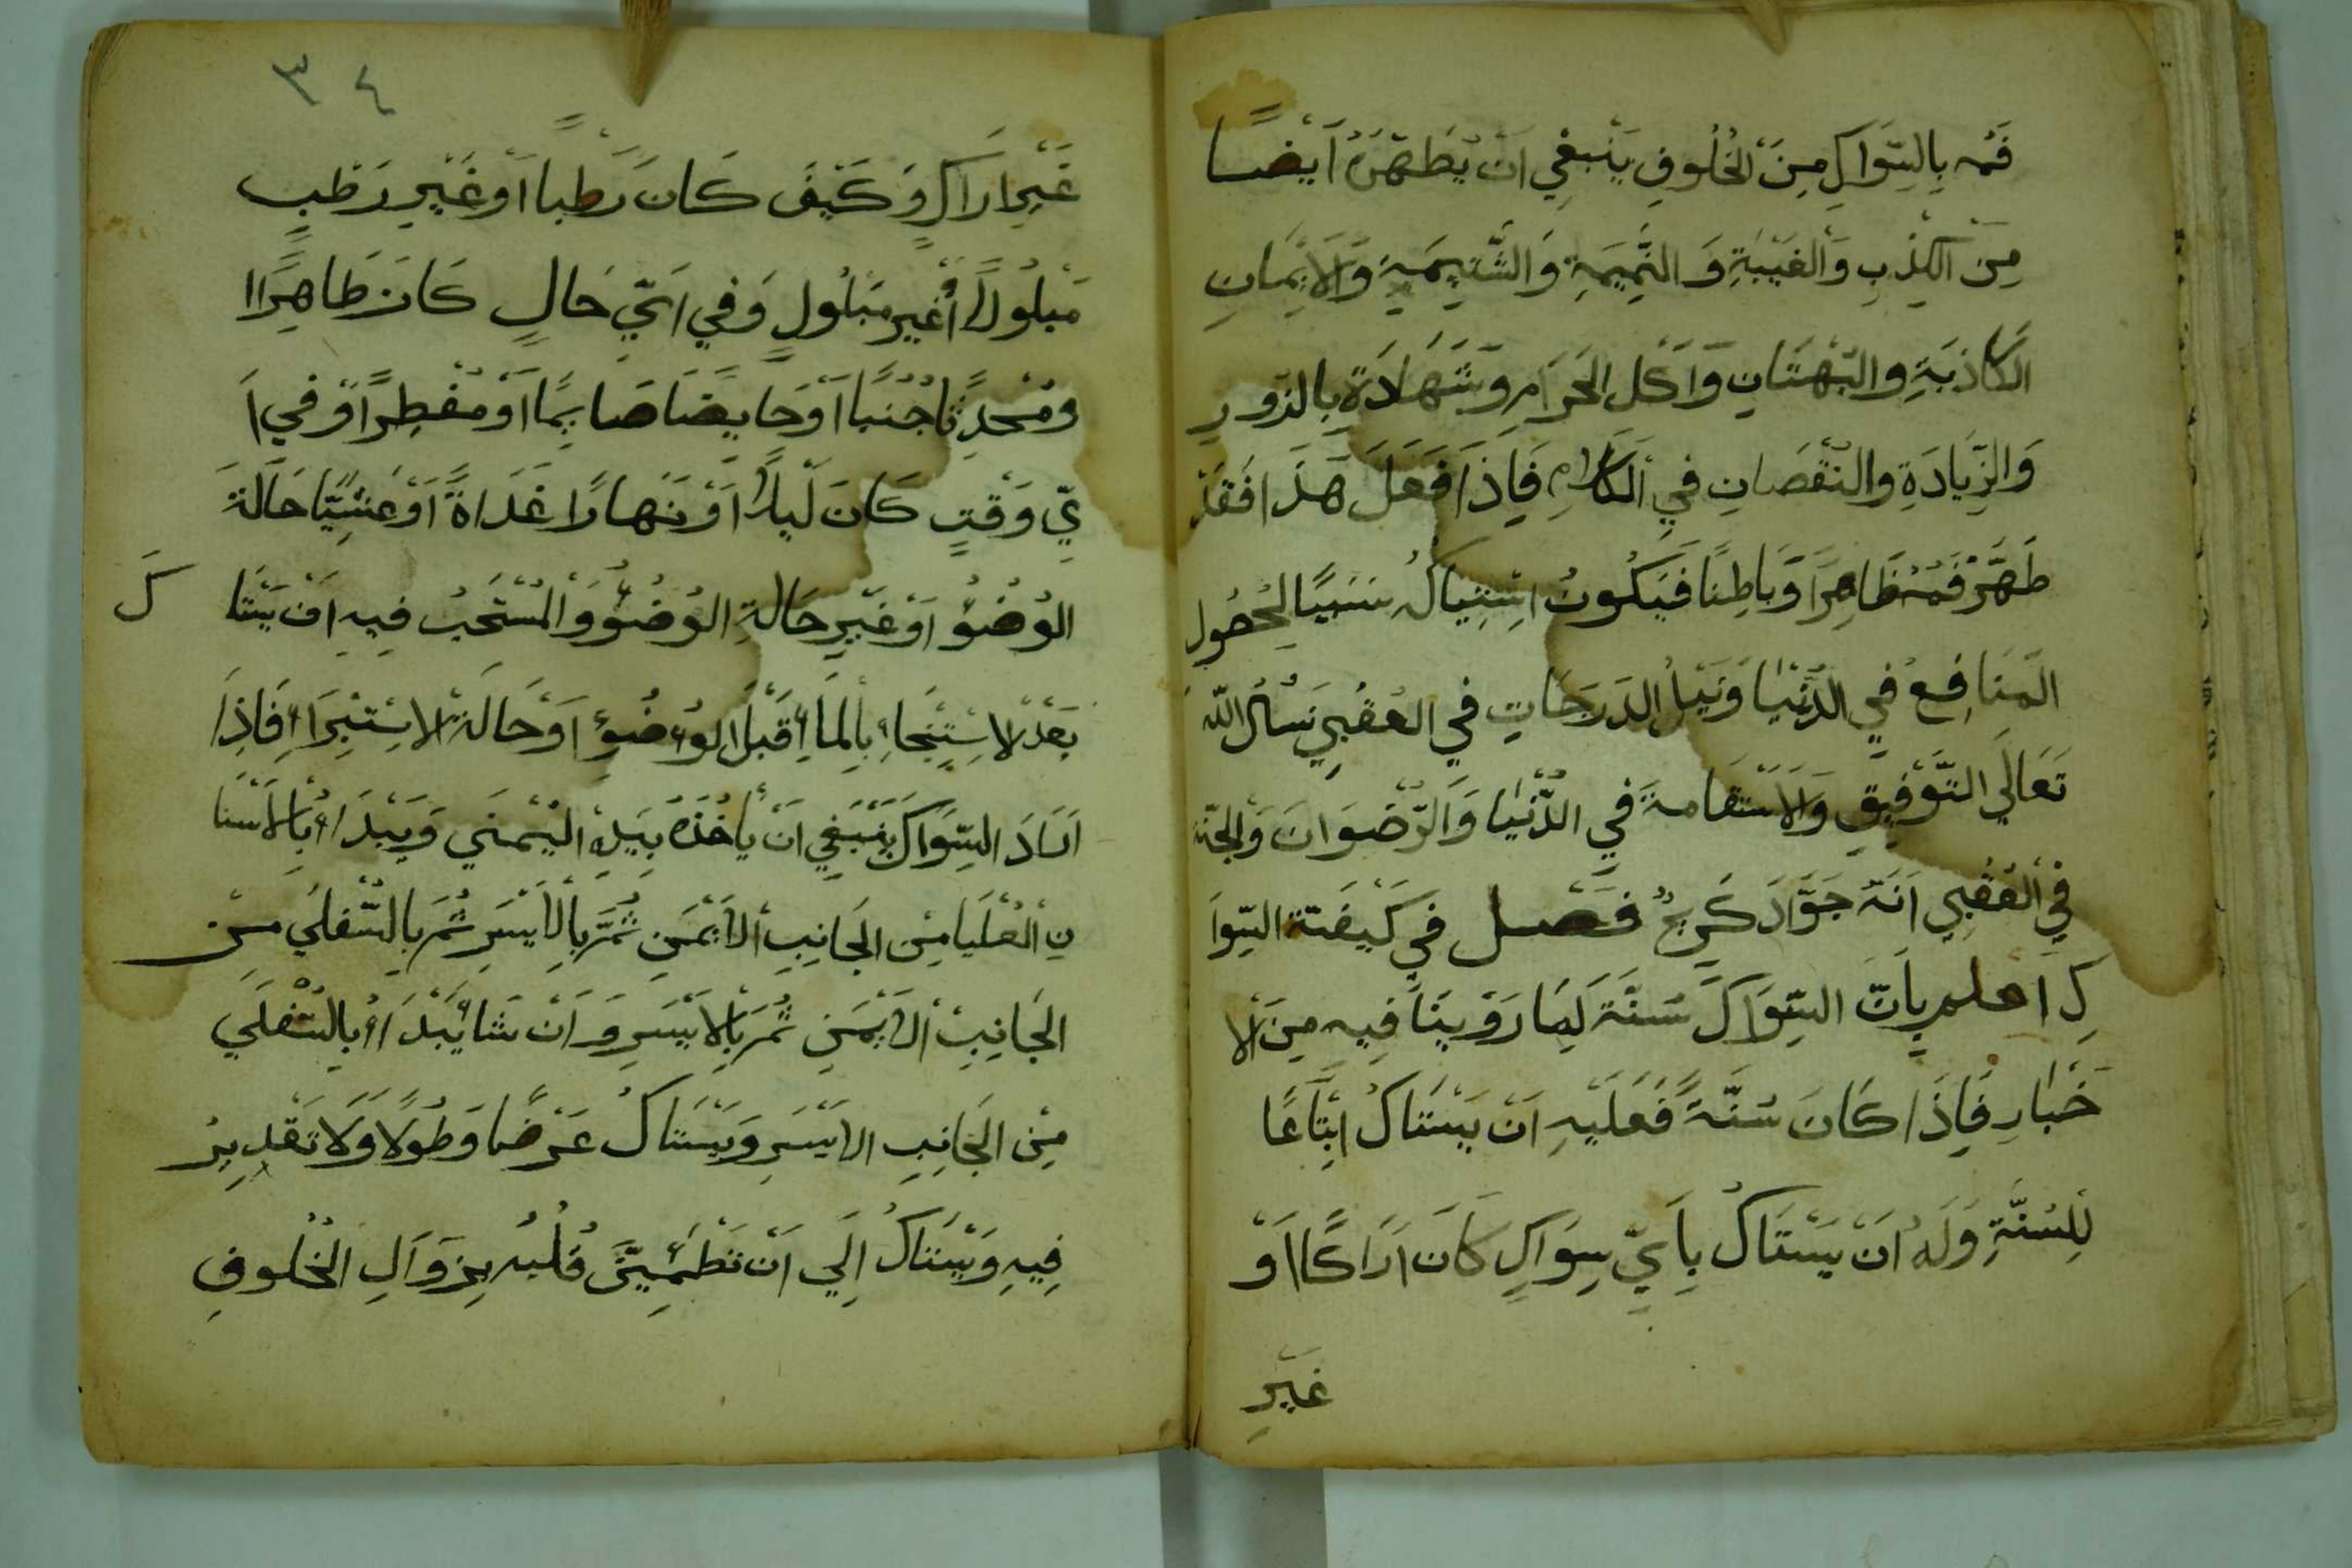 فَمُه بِالسِّوَاكِ مِنَ الخُلُوفِ يَنْبَغِي اَنْ يُطَهِّرَهُ اَيْضًا
مِنَ الكِذْبِ وَالْغَيْبَةِ وَ النَّمِيمَةِ وَ الشَّتِيمَةِ وَالاَيْمَانِ
الكَاذِبَةِ والبُهْتَانِ وَاَكْلِ الحَرَامِ وَشَهَادَةٍ بِالزُّورِ
وَالزِّيَادَةِ والنُّقْصَانِ فِي الكَلَامِ فَاِذَا فَعَلَ هَذَا فَقَدْ
طَهَّرَ فَمُهُ ظَاهِرًا وَبَاطِنًا فَيَكُونُ اسْتِيَاكُهُ سَبَبًا لِحُصُولِ
المَنَافِعِ فِي الدُّنْيَا وَنَيْلِ الدَرَجَاتِ فِي العُقْبِي نَسْأَلُ اللّه
تَعَالَي التَّوْفِيقِ وَالاسْتقَامةَ فِي الدُّنْيَا وَالرِّضْوَانَ وَالجنّة
فِي الْعُقْبِي اَنَّهُ جَوَّادٌ كَرِيمٌ فَصل فِي كَيْفَيّة السِّوَا
كِ اعلم بِاَنَّ السِّوَاكَ سُنَّةٌ لِمَا رَوَيْنَا فِيهِ مِنَ الا
خْبَارِ فَاِذَا كَانَ سُنَّةً فَعَلَيْهِ اَنْ يَسْتَاكُ اتِّبَاعًا
لِلسُنَّةِ وَلَهُ اَنْ يَسْتَاكُ بِاَيِّ سِوَاكٍ كَانَ اَرَاكًا اَوْ
غَيْرِ
٣٤
غَيْرِ ارَاكٍ وَكَيْفَ كَانَ رَطْبًا اَوْ غَيْرِ رَطْبٍ
مَبْلُولًا اَوْ غَيْرِ مَبْلُولٍ وَفِي اَيِّ حَالٍ كَانَ طَاهِرًا ا
ومُحْدِثًا جُنُبًا اَوْ حَايِضًا صَايِمًا اَوْ مُفْطِرًا وَفِي اَ
يِّ وَقْتٍ كَانَ لَيْلًا اَوْ نَهارًا غَدَاةً اَوْ عَشِيًّا حَالَةَ
الوُضُؤُ اَوْ غَيْرِ حَالَةِ الوُضُؤُ وَالمُسْتَحَبُ فِيهِ اَنْ يَسْتَا كَ
بَعْدَ الاسْتِنْجَاءِ بِالمَاءِ قَبْلَ الوُضُوءِ اَوْ حَالَةَ الاسْتِبْرَاءِ فَاِذَا
اَرَادَ السِّوَاكَ يَنْبَغِي اَنْ يَأْخُذَهُ بِيَدِهِ اليُمْنَي وَيَبْدَاءُ بِالاَسْنَا
نِ الْعُلْيَا مِنَ الجَانِبِ الاَيْمَنِ ثُمَّ بِالاَيْسَرِ ثُمَّ بِالسُّفْلَي مِنَ
الجَانِبِ الاَيْمَنِ ثُمَّ بِالاَيْسَرِ وَ اَنْ شَا يَبْدَاءُ بِالسُّفْلَي
مِنَ الجَانِبِ الاَيْسَرِ وَيَسْتَاكُ عَرْضًا وَطُولًا وَلَا تَقْدِيرَ
فِيهِ وَيَسْتَاكُ اِلَي اَنْ تَطْمَئِنَّ قَلْبُهُ بِزَوَالِ الخُلُوفِ